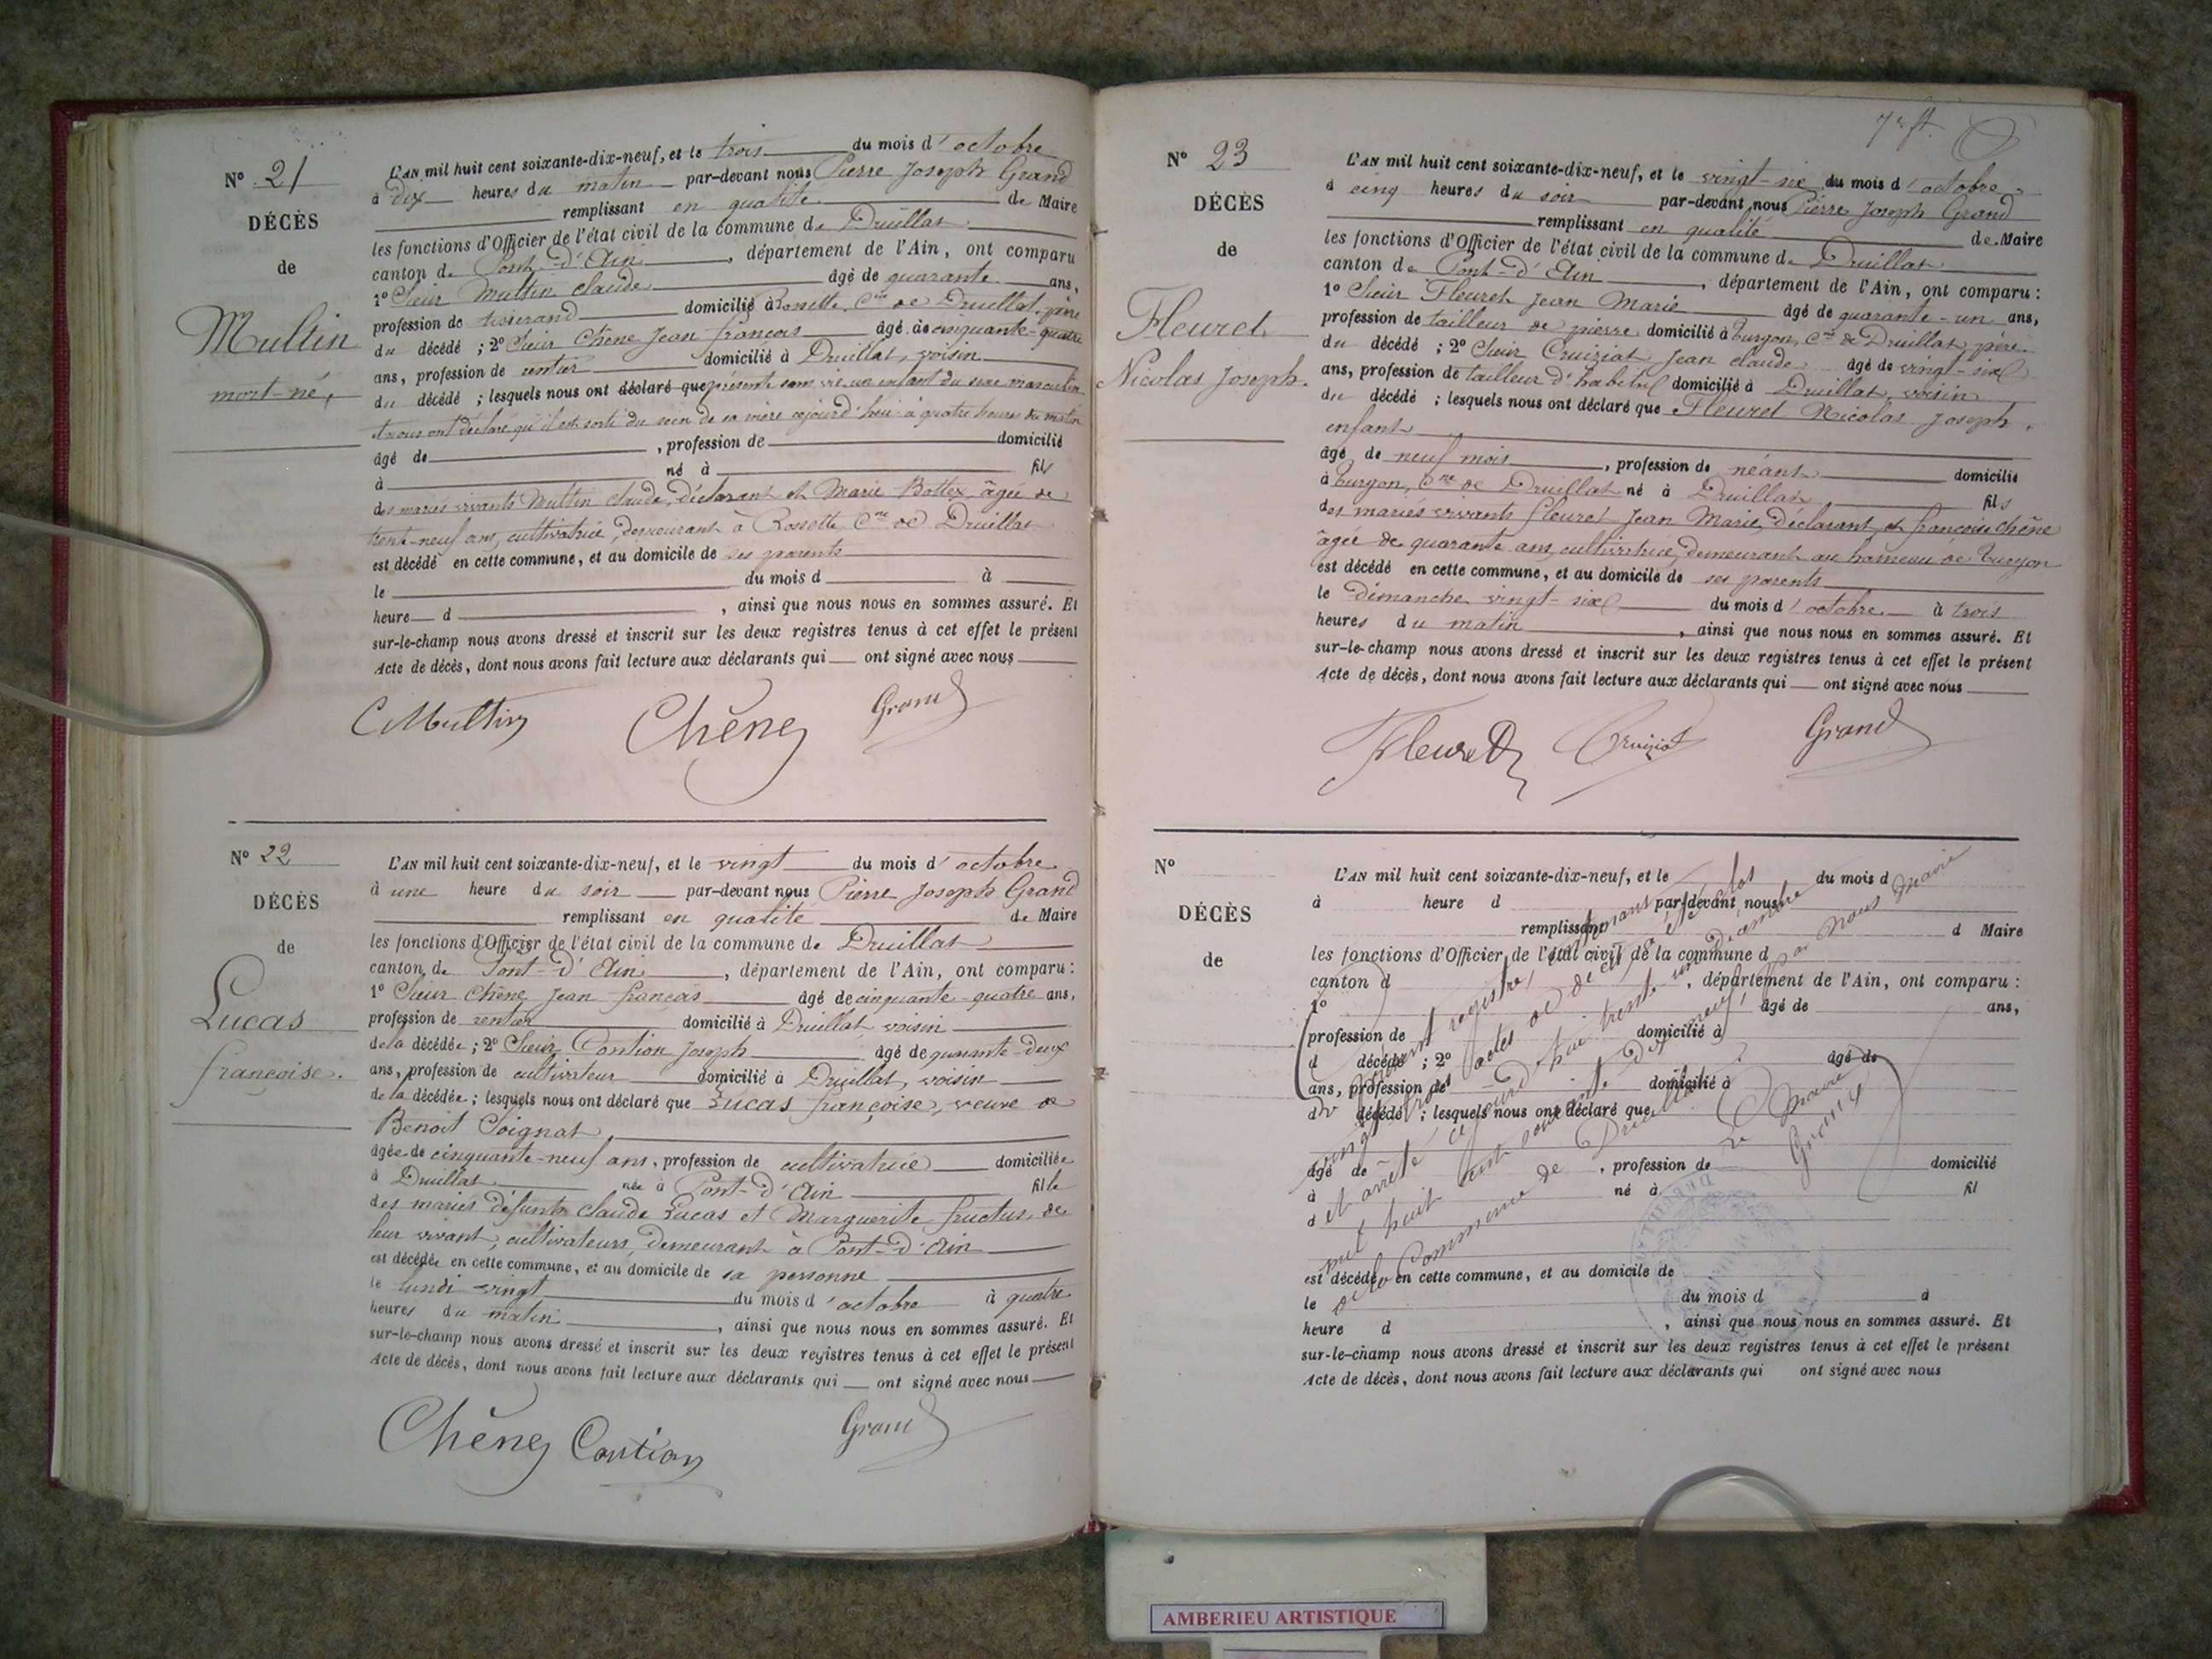 N° 21
DÉCÈS
de
Multin
mort-né,
L'AN mil huit cent soixante-dix-neuf, et le trois du mois d'octobre
à dix heures du matin par-devant nous Pierre Joseph Grand
remplissant en qualité de Maire
les fonctions d'Officier de l'état civil de la commune de Druillat
canton de Pont-d'Ain, département de l'Ain, ont comparu
1° Sieur Multin Claude âgé de quarante ans,
profession de tisserand domicilié à Rossette, Cne de Druillat, père
du décédé ; 2° Sieur Chêne Jean françois âgé de cinquante-quatre
ans, profession de rentier domicilié à Druillat, voisin
du décédé ; lesquels nous ont déclaré que présenté sans vie un enfant du sexe masculin
et nous ont déclaré qu'il est sorti du sein de sa mère cejourd'hui à quatre heures du matin
âgé de , profession de domicilié
à né à fils
des mariés vivants Multin Claude, déclarant et Marie Bottex, âgée de
trente-neuf ans, cultivatrice, demeurant à Rossette Cne de Druillat
est décédé en cette commune, et au domicile de ses parents
le du mois d à
heure d , ainsi que nous nous en sommes assuré. Et
sur-le-champ nous avons dressé et inscrit sur les deux registres tenus à cet effet le présent
Acte de décès, dont nous avons fait lecture aux déclarants qui ont signé avec nous
C Multin Chêne Grand
N° 22
DÉCÈS
de
Lucas
françoise.
L'AN mil huit cent soixante-dix-neuf, et le vingt du mois d'octobre
à une heure du soir par-devant nous Pierre Joseph Grand
remplissant en qualité de Maire
les fonctions d'Officier de l'état civil de la commune de Druillat
canton de Pont-d'Ain, département de l'Ain, ont comparu :
1° Sieur Chêne Jean françois âgé de cinquante-quatre ans,
profession de rentier domicilié à Druillat voisin
de la décédée ; 2° Sieur Contion Joseph âgé de quarante-deux
ans, profession de cultivateur domicilié à Druillat, voisin
de la décédée ; lesquels nous ont déclaré que Lucas françoise, veuve de
Benoit Soignat,
âgée de cinquante-neuf ans, profession de cultivatrice domiciliée
à Druillat née à Pont-d'Ain fille
des mariés défunts Claude Lucas et Marguerite fructus, de
leur vivant, cultivateurs, demeurant à Pont-d'Ain
est décédée en cette commune, et au domicile de sa personne
le lundi vingt du mois d'octobre à quatre
heures du matin, ainsi que nous nous en sommes assuré. Et
sur-le-champ nous avons dressé et inscrit sur les deux registres tenus à cet effet le présent
Acte de décès, dont nous avons fait lecture aux déclarants qui ont signé avec nous
Chêne Contion Grand
7e ft.
N° 23
DÉCÈS
de
Fleuret
Nicolas Joseph.
L'AN mil huit cent soixante-dix-neuf, et le vingt-six du mois d'octobre
à cinq heures du soir par-devant nous Pierre Joseph Grand
remplissant en qualité de Maire
les fonctions d'Officier de l'état civil de la commune de Druillat
canton de Pont-d'Ain, département de l'Ain, ont comparu :
1° Sieur Fleuret Jean Marie âgé de quarante-un ans,
profession de tailleur de pierre domicilié à Turgon, Cne de Druillat, père
du décédé ; 2° Sieur Cruiziat Jean Claude âgé de vingt-six
ans, profession de tailleur d'habits domicilié à Druillat, voisin
du décédé ; lesquels nous ont déclaré que Fleuret Nicolas Joseph,
enfant
âgé de neuf mois, profession de néant domicilié
à Turgon, Cne de Druillat né à Druillat fils
des mariés vivants fleuret Jean Marie, déclarant, et françoise chêne
âgée de quarante ans, cultivatrice, demeurant au hameau de Turgon
est décédé en cette commune, et au domicile de ses parents
le dimanche vingt-six du mois d'octobre à trois
heures du matin, ainsi que nous nous en sommes assuré. Et
sur-le-champ nous avons dressé et inscrit sur les deux registres tenus à cet effet le présent
Acte de décès, dont nous avons fait lecture aux déclarants qui ont signé avec nous
Fleuret Cruiziat Grand
N°
DÉCÈS
de
L'AN mil huit cent soixante-dix-neuf, et le du mois d
à heure d par-devant nous
remplissant d Maire
les fonctions d'Officier de l'état civil de la commune d
canton d , département de l'Ain, ont comparu :
1° âgé de ans,
profession de domicilié à
d décédé ; 2° âgé de
ans, profession de domicilié à
d décédé ; lesquels nous ont déclaré que
âgé de , profession de domicilié
à né à fil
d
est décédé en cette commune, et au domicile de
le du mois d à
heure d , ainsi que nous nous en sommes assuré. Et
sur-le-champ nous avons dressé et inscrit sur les deux registres tenus à cet effet le présent
Acte de décès, dont nous avons fait lecture aux déclarants qui ont signé avec nous
registre, contenant
vingt trois actes de décès, a été clos
et arrêté cejourd'hui trente un décembre
mil huit cent soixante dix neuf, par nous Maire
de la Commune de Druillat
Le Maire
Grand
AMBERIEU ARTISTIQUE